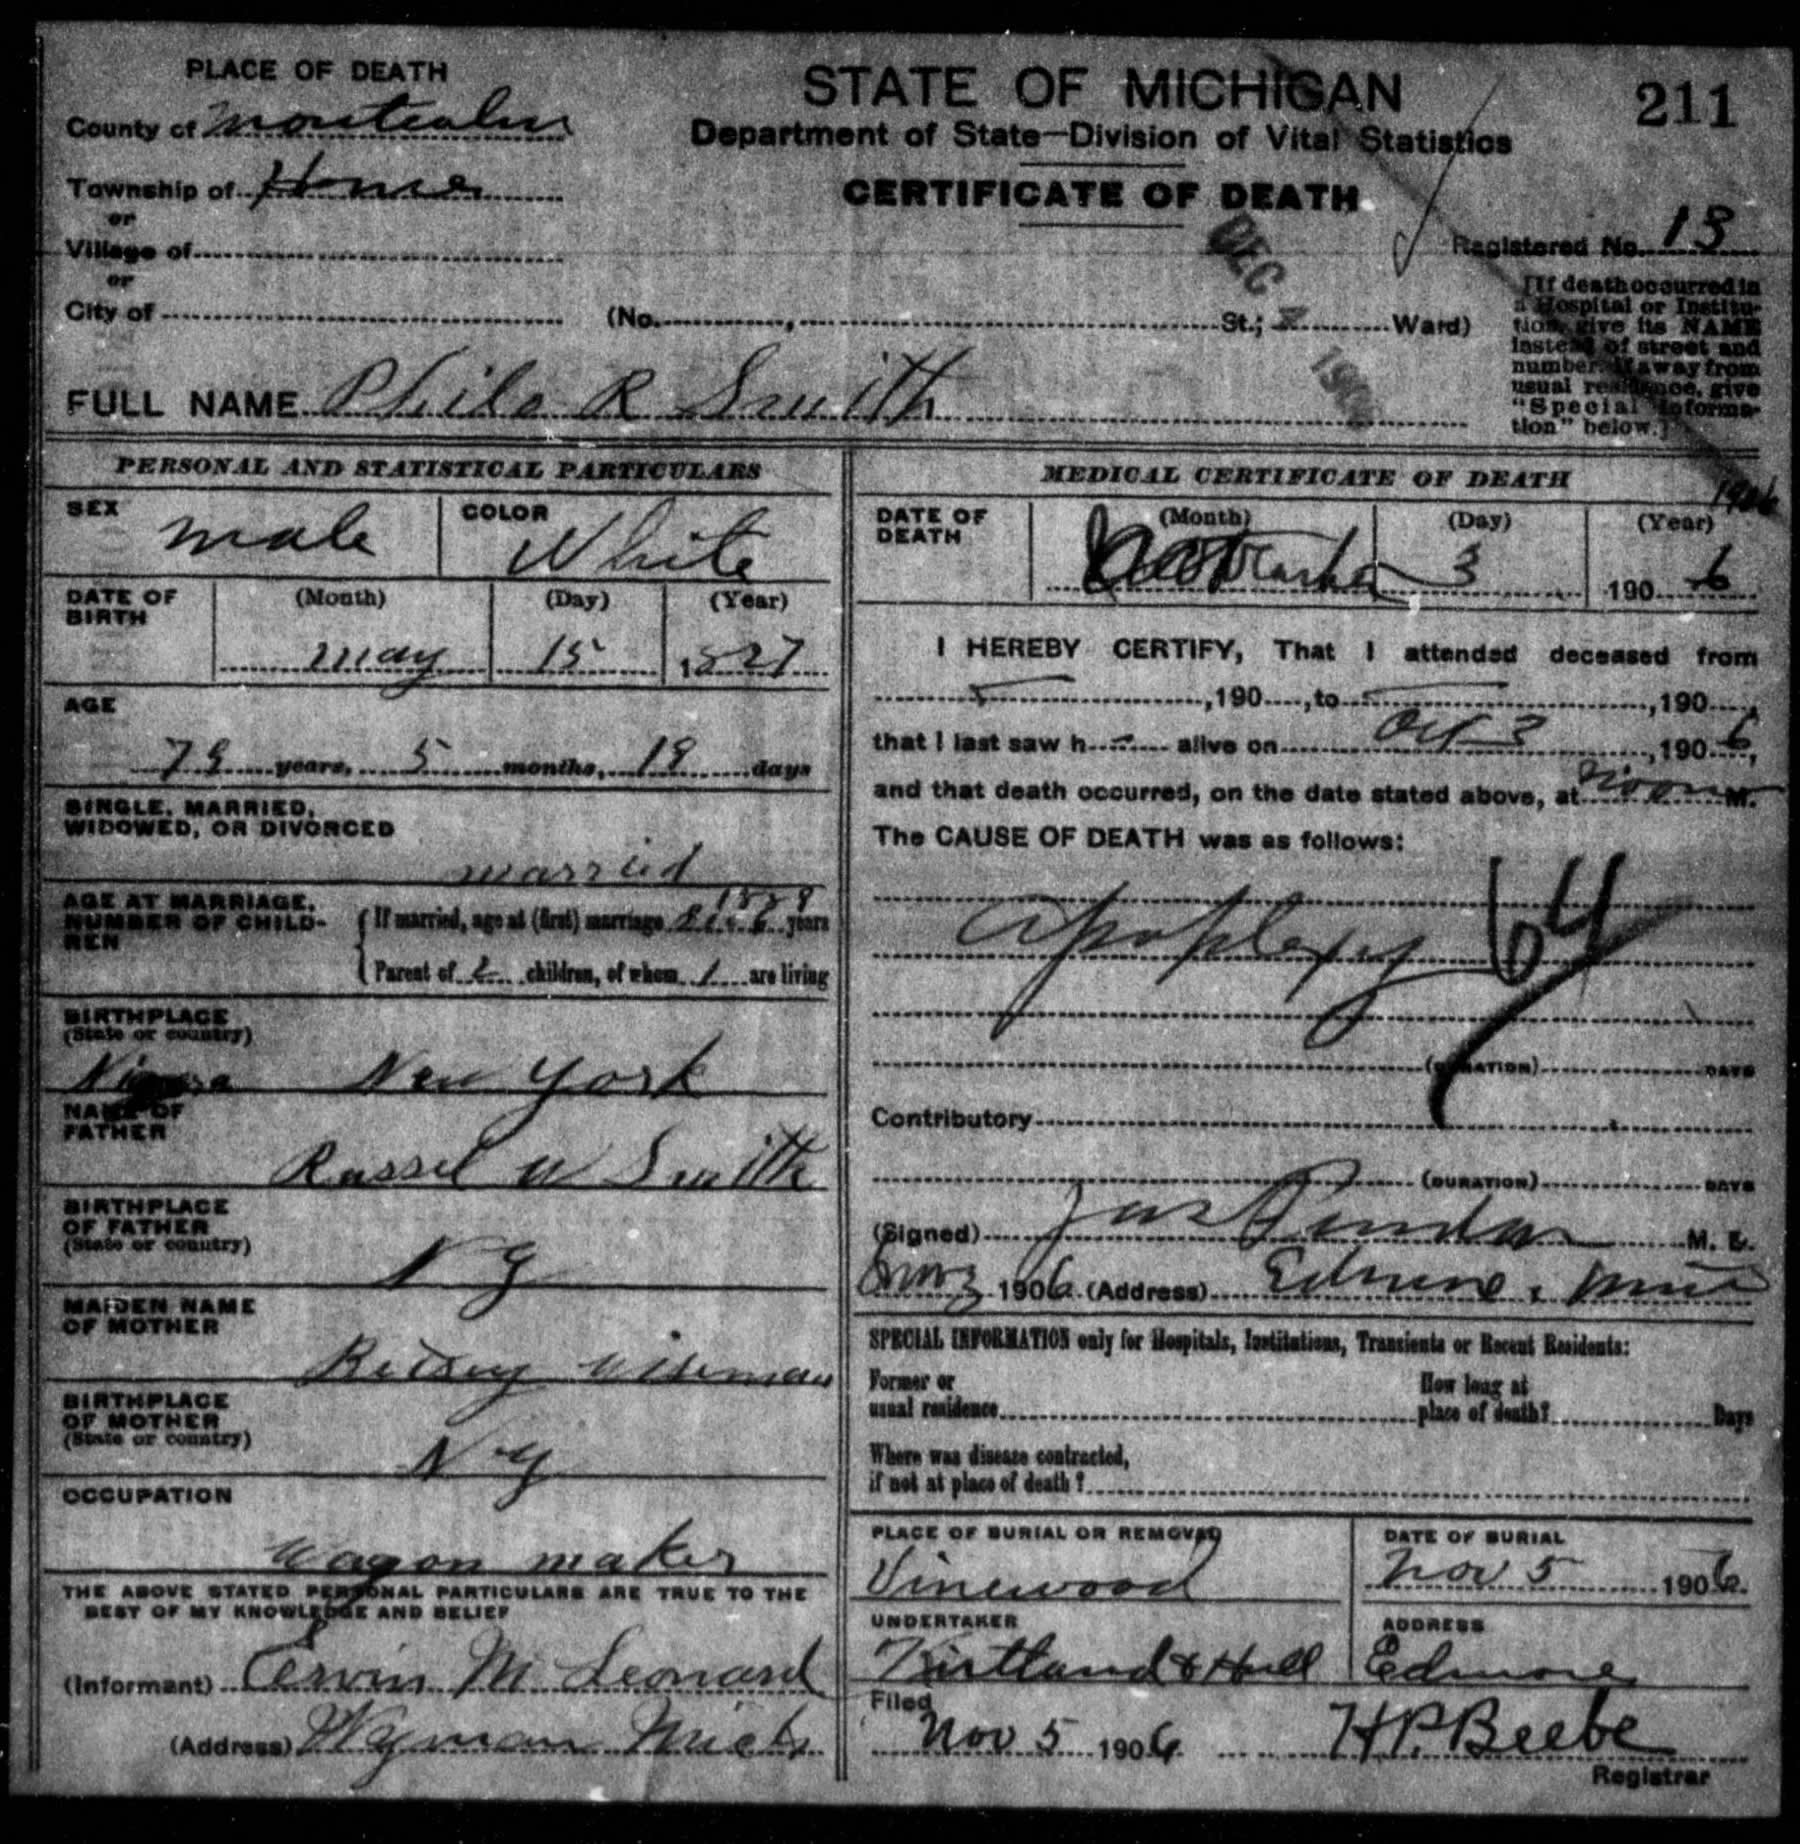 PLACE OF DEATH
County of Montcalm
Township of Home
or
Village of
or
City of
STATE OF MICHIGAN
Department of State—Division of Vital Statistics
CERTIFICATE OF DEATH
211
Registered No. 13
DEC
(No. , St.; Ward)
[If death occurred in
a Hospital or Institu-
tion, give its NAME
instead of street and
number. If away from
usual residence, give
"Special Informa-
tion" below.]
FULL NAME Philo R Smith
PERSONAL AND STATISTICAL PARTICULARS
SEX male
COLOR White
DATE OF BIRTH
(Month) (Day) (Year)
May 15 1827
AGE
79 years, 5 months, 18 days
SINGLE, MARRIED,
WIDOWED, OR DIVORCED
married
AGE AT MARRIAGE,
NUMBER OF CHILD-
REN
If married, age at (first) marriage years
Parent of 2 children, of whom 1 are living
BIRTHPLACE
(State or country)
New York
NAME OF
FATHER
Russel W Smith
BIRTHPLACE
OF FATHER
(State or country)
N Y
MAIDEN NAME
OF MOTHER
Betsey Wiseman
BIRTHPLACE
OF MOTHER
(State or country)
N Y
OCCUPATION
Wagon maker
THE ABOVE STATED PERSONAL PARTICULARS ARE TRUE TO THE
BEST OF MY KNOWLEDGE AND BELIEF
(Informant) Ervin M Leonard
(Address) Wyman Mich
MEDICAL CERTIFICATE OF DEATH
1906
DATE OF DEATH
(Month) (Day) (Year)
3 1906
I HEREBY CERTIFY, That I attended deceased from
, 190 , to , 190 ,
that I last saw h — alive on Oct 3 , 1906,
and that death occurred, on the date stated above, at noon M.
The CAUSE OF DEATH was as follows:
Apoplexy 64
(DURATION) DAYS
Contributory
(DURATION) DAYS
(Signed) Jas M. D.
Nov 3 1906 (Address) Edmore, Mich
SPECIAL INFORMATION only for Hospitals, Institutions, Transients or Recent Residents:
Former or
usual residence
How long at
place of death? Days
Where was disease contracted,
if not at place of death?
PLACE OF BURIAL OR REMOVAL
Vinewood
DATE OF BURIAL
Nov 5 1906
UNDERTAKER
Kirtland & Hull
ADDRESS
Edmore
Filed
Nov 5 1906 H P. Beebe
Registrar